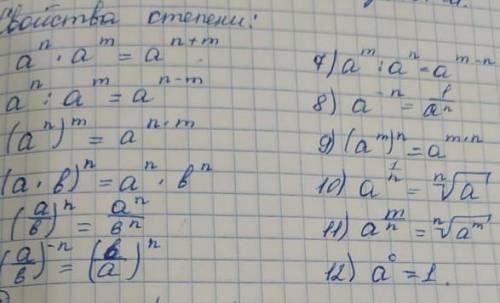 Свойства степени:
aⁿ · aᵐ = aⁿ⁺ᵐ
aⁿ : aᵐ = aⁿ⁻ᵐ
(aⁿ)ᵐ = aⁿ·ᵐ
(a · в)ⁿ = aⁿ · вⁿ
(a/в)ⁿ = aⁿ/вⁿ
(a/в)⁻ⁿ = (в/a)ⁿ
7) aᵐ : aⁿ = aᵐ⁻ⁿ
8) a⁻ⁿ = 1/aⁿ
9) (aᵐ)ⁿ = aᵐ·ⁿ
10) a^(1/n) = ⁿ√a
11) a^(m/n) = ⁿ√aᵐ
12) a⁰ = 1.